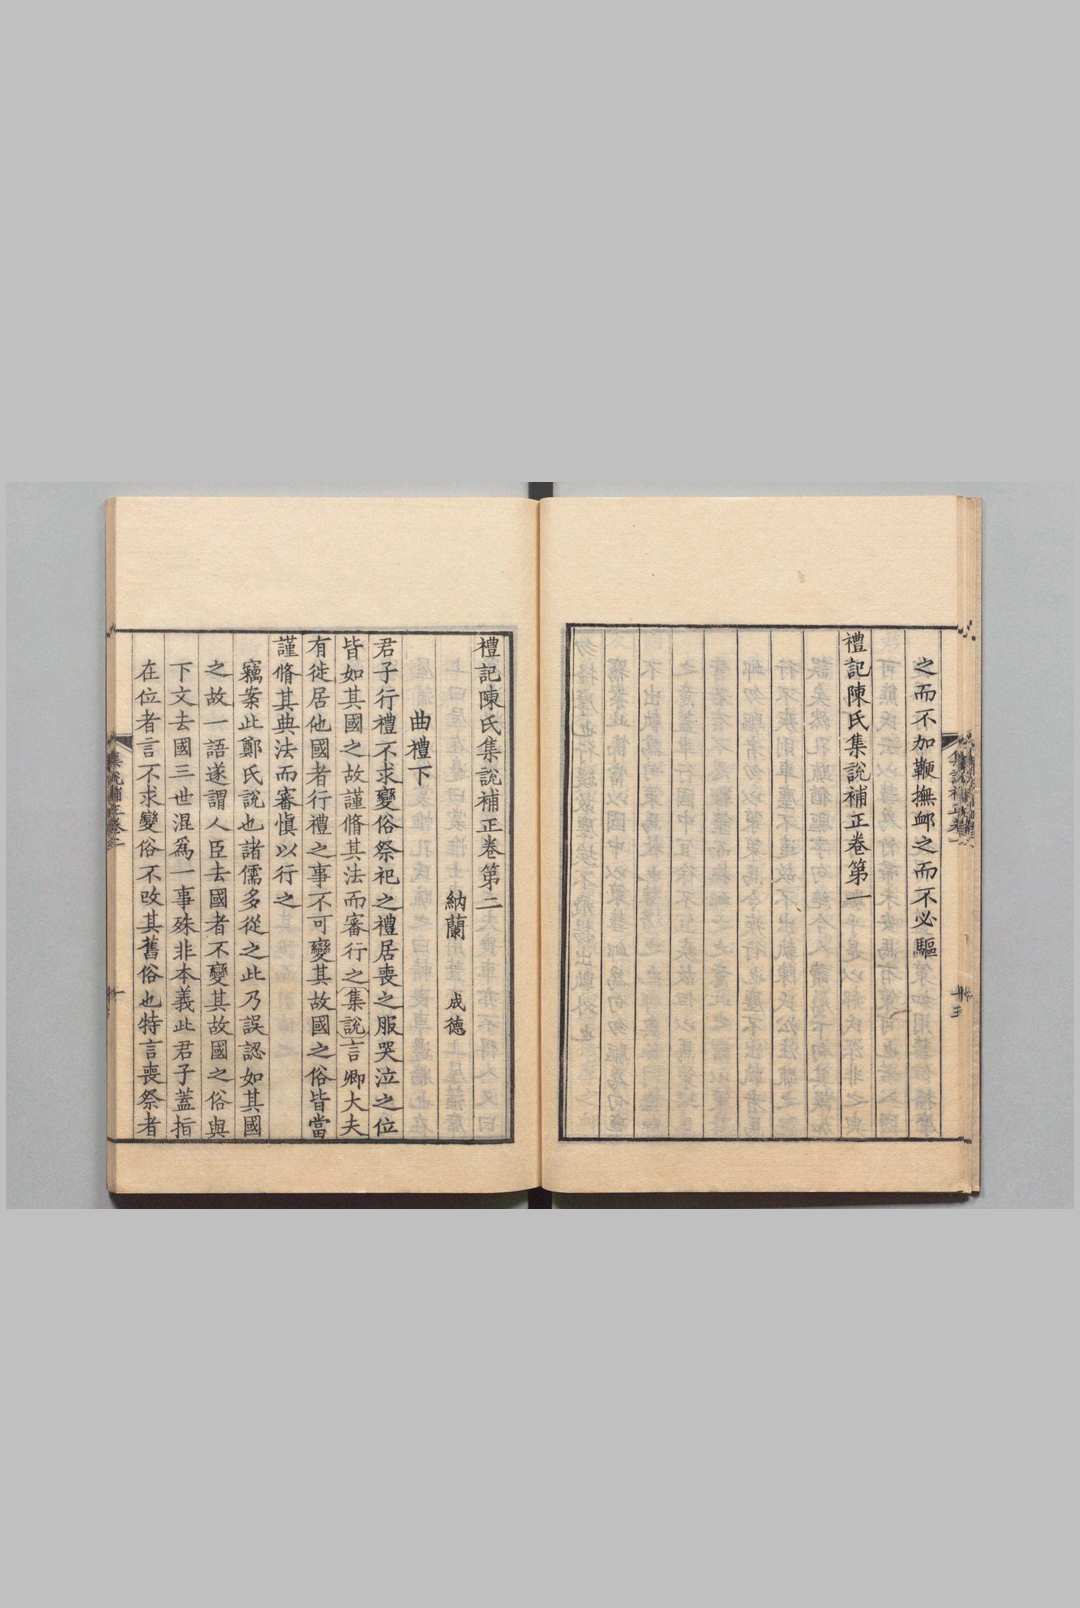 之而不加鞭撫卹之而不必驅
禮記陳氏集說補正卷第一
禮記陳氏集說補正卷第二
納蘭 成德
曲禮下
君子行禮不求變俗祭祀之禮居喪之服哭泣之位
皆如其國之故謹脩其法而審行之集說言卿大夫
有徙居他國者行禮之事不可變其故國之俗皆當
謹脩其典法而審慎以行之
竊案此鄭氏說也諸儒多從之此乃誤認如其國
之故一語遂謂人臣去國者不變其故國之俗與
下文去國三世混爲一事殊非本義此君子蓋指
在位者言不求變俗不改其舊俗也特言喪祭者